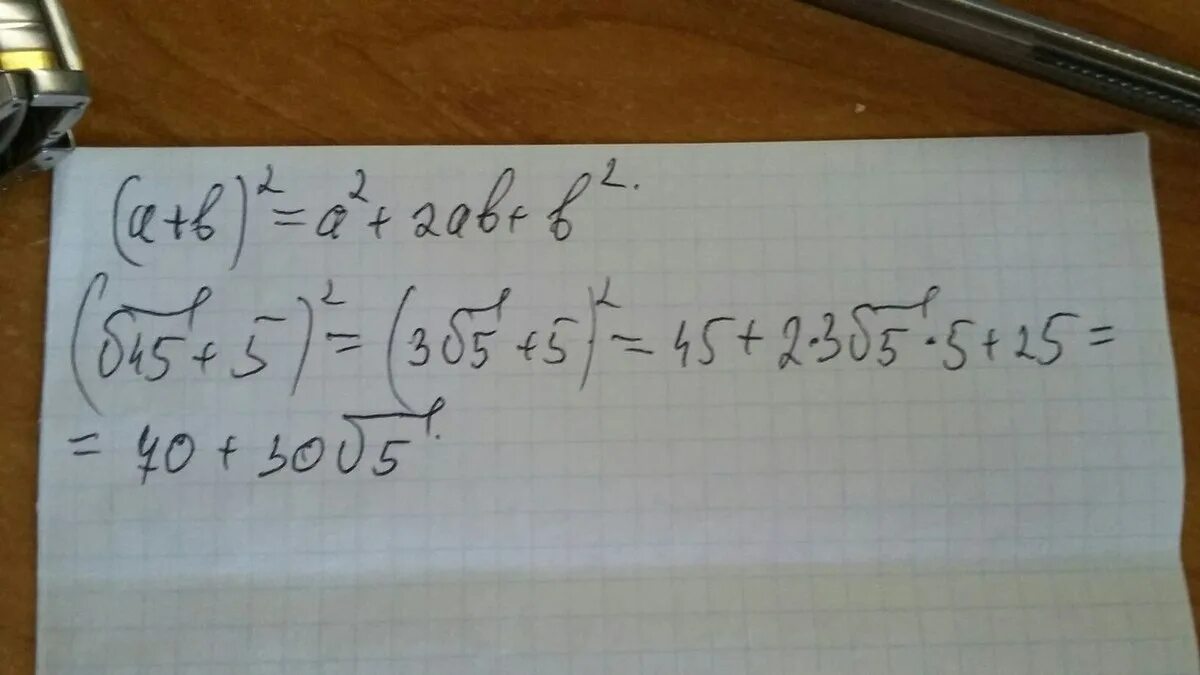 (a+b)² = a² + 2ab + b².
(√45 + 5)² = (3√5 + 5)² = 45 + 2·3√5·5 + 25 =
= 70 + 30√5.